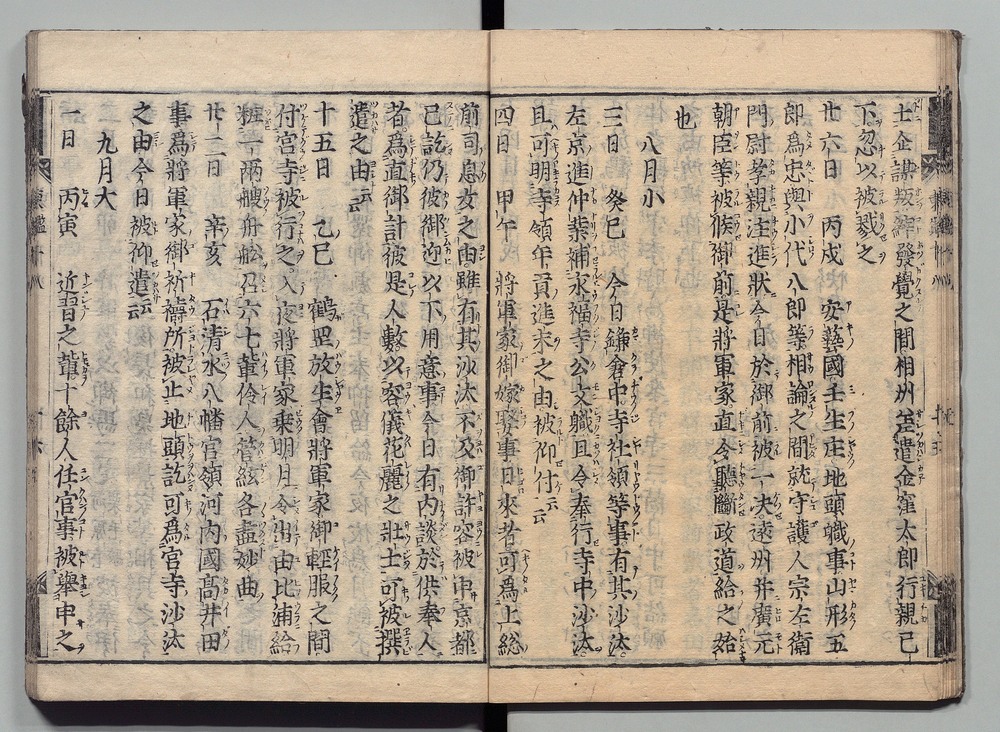 士企謀叛発覺之間相州差遣金窪太郎行親已
下忽以被戮之
廿六日　丙戌　安藝國壬生庄地頭職事山形五
郎爲忠與小代八郎等相論之間就守護人宗左衛
門尉孝親注進狀今日於御前被一決遠州幷廣元
朝臣等被候御前是將軍家直令聽斷政道給之始
也
八月小
三日　癸巳　今日鎌倉中寺社領等事有其沙汰
左京進仲業補永福寺公文職且令奉行寺中沙汰
且可明寺領年貢進未之由被仰付云云
四日　甲午　將軍家御嫁娶事日來者可爲上総
前司息女之由雖有其沙汰不及御許容被申京都
已訖仍彼御迎以下用意事今日有内談於供奉人
者爲直御計被是人數以容儀花麗之壯士可被撰
遣之由云云
十五日　乙巳　鶴罡放生會將軍家御輕服之間
付宮寺被行之入夜將軍家乗明月令出由比浦給
粧一兩艘舟舩召六七輩伶人管絃各盡妙曲
廿二日　辛亥　石清水八幡宮領河内國高井田
事爲將軍家御祈禱所被止地頭訖可爲宮寺沙汰
之由今日被仰遣云云
九月大
一日　丙寅　近習之輩十餘人任官事被舉申之